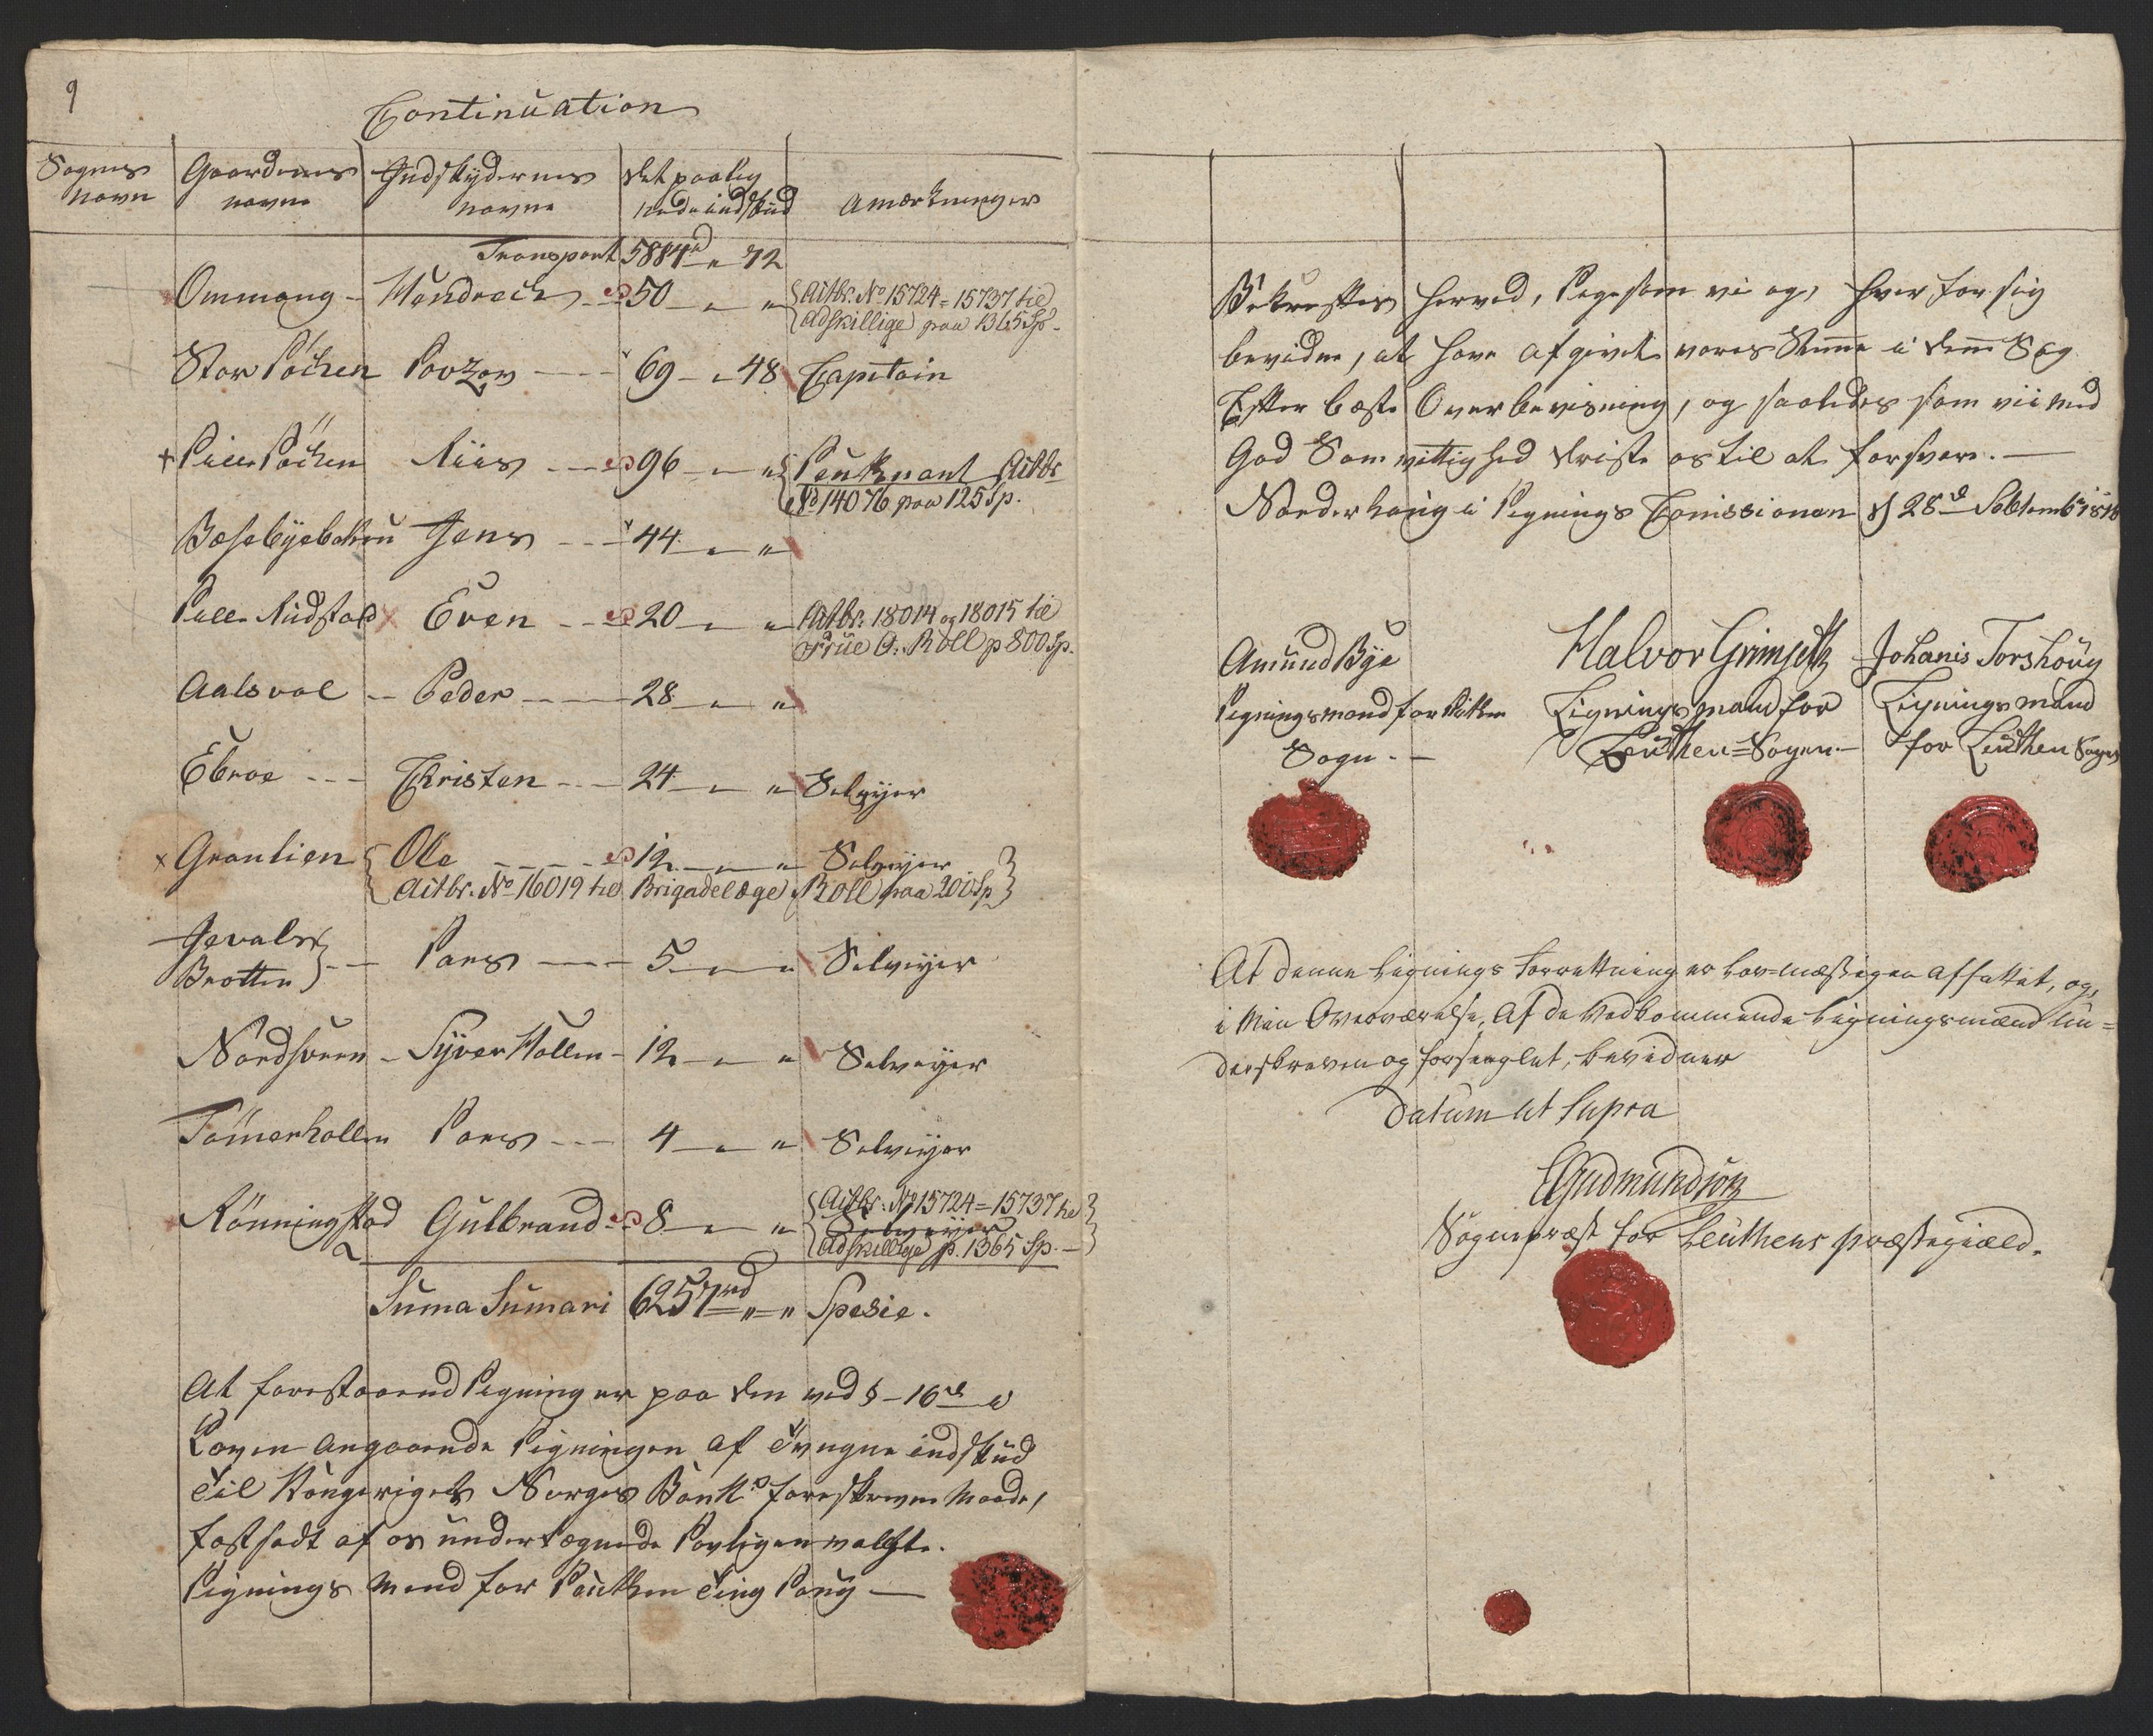 9
Continuation
Sognes Navn | Gaardenes navne | Indskydernes navne | det paalig nede indskud | Anmerkninger
Transport 5884 " 72
Ommang - Hendrech - 50 - " " Actbr. No 15724 = 15737 til
Adskillige paa 1365 Sp.
Stor Löchen Povzow - 69 - " 48 Capitain
+ Lille Löchen Riis - 96 - " " Leutenant Actbr
No 14076 paa 125 Sp.
Bæsebÿebakken Jens - 44 - " "
Lille Rudstad x Even - 20 - " " Actbr. 18014 og 18015 til
Frue A. Roll p 800 Sp.
Aalsval - Peder - 28 - " "
Ebroe - Christen - 24 - " " Selveÿer
x Granlien Ole - 12 - " " Selveÿer
Actbr. No 16019 til Brigadelæge Roll paa 200 Sp
Jevals
Brotten - Lars - 5 - " " Selveÿer
Nordsveen - Sÿver Hollen - 12 - " " Selveÿer
Tömerhollen Lars - 4 - " " Selveÿer
Rönningstad Gulbrand - 8 - " " Actbr. No 15724 = 15737 til
Selveÿer
Adskillige p. 1365 Sp. -
Suma Sumari 6257 rd " " Spesie.
At forestaaend Ligning er paa den ved § - 16de i
Loven angaaende Ligningen af Tvugne indskud
Til Kongeriget Norges Bank foreskrevne Maade,
fastsadt af os undertægnede Lovligen valgte.
Lignings Mend for Leuthen Ting Laug -
Bekreftes herved, ligesom vi og, hver for sig
bevidne, at have afgivet vores Stemme i denne Sag
Efter beste Overbevisning, og saaledes som vii med
God Samvittighed driste os til at forsvare. -
Norderhaug i Lignings Comissionen d 28de Sebtembr 1818
Amund Bÿe
Ligningsmand for Löthen
Sogn. -
Halvor Grimseth
Ligningsmand for
Leuthen = Sogen. -
Johanis Torshoug
Ligningsmand
for Leuthen Sogn
At denne Lignings Forretning er Lov=mæssigen affattet, og,
i Min Overværelse, Af de Vedkommende Ligningsmænd Un=
derskreven og forseglet, bevidner
Datum ut Supra
Gudmundsön
Sogneprest for Leuthens præstegiæld.